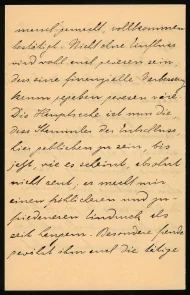 mend gewirkt, vollkommen
bestätigt. Nicht ohne Einfluss
wird wohl auch gewesen sein,
dass eine finanzielle Verbesserung
kaum gegeben gewesen wäre.
Die Hauptsache ist nun die,
dass Stammler der Entschluss
hier geblieben zu sein, bis
jetzt, wie es scheint, absolut
nicht reut; er macht mir
einen fröhlicheren und zu-
friedeneren Eindruck als
seit langem. Besondere Freude
gewährt ihm auch die